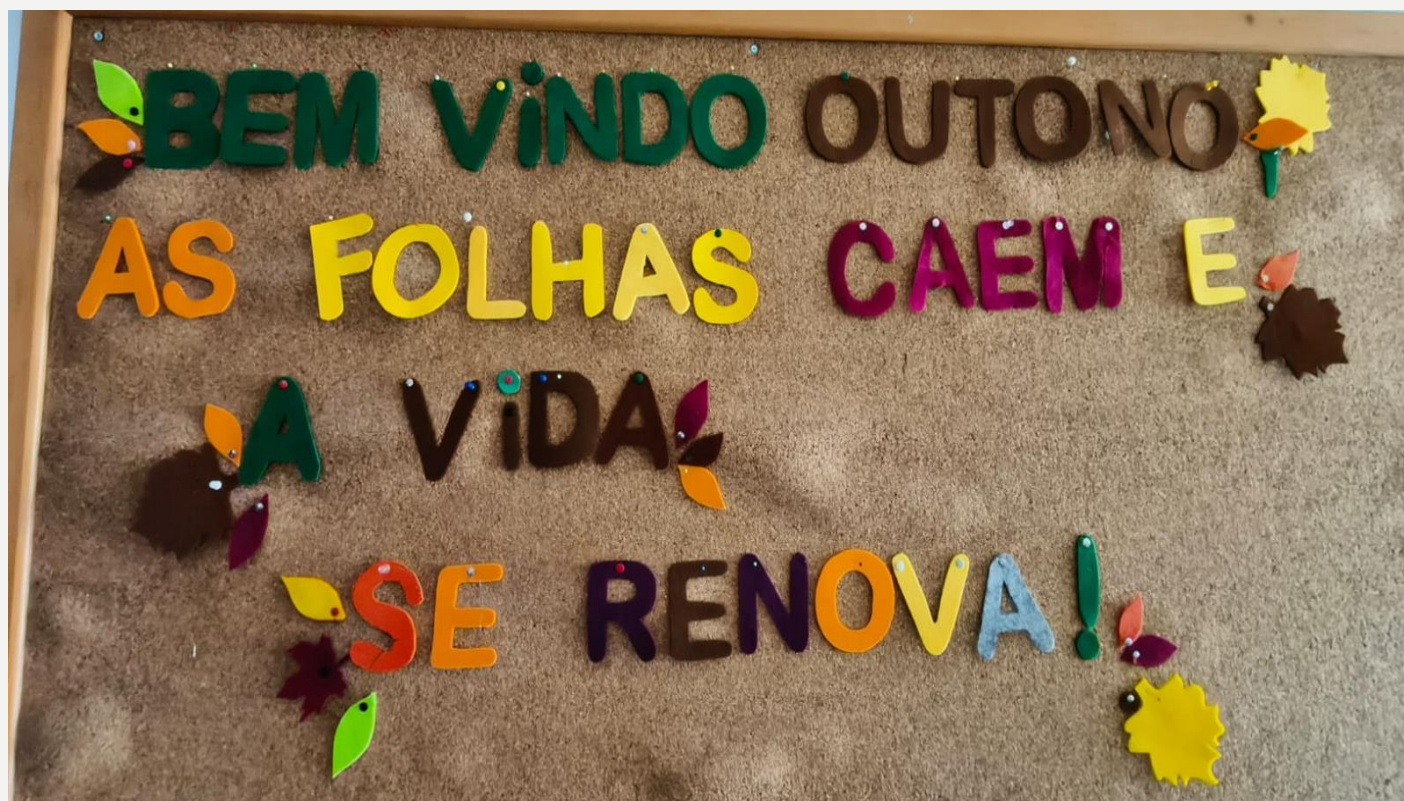 BEM ViNDO OUTONO
AS FOLHAS CAEM E
A ViDA
SE RENOVA!